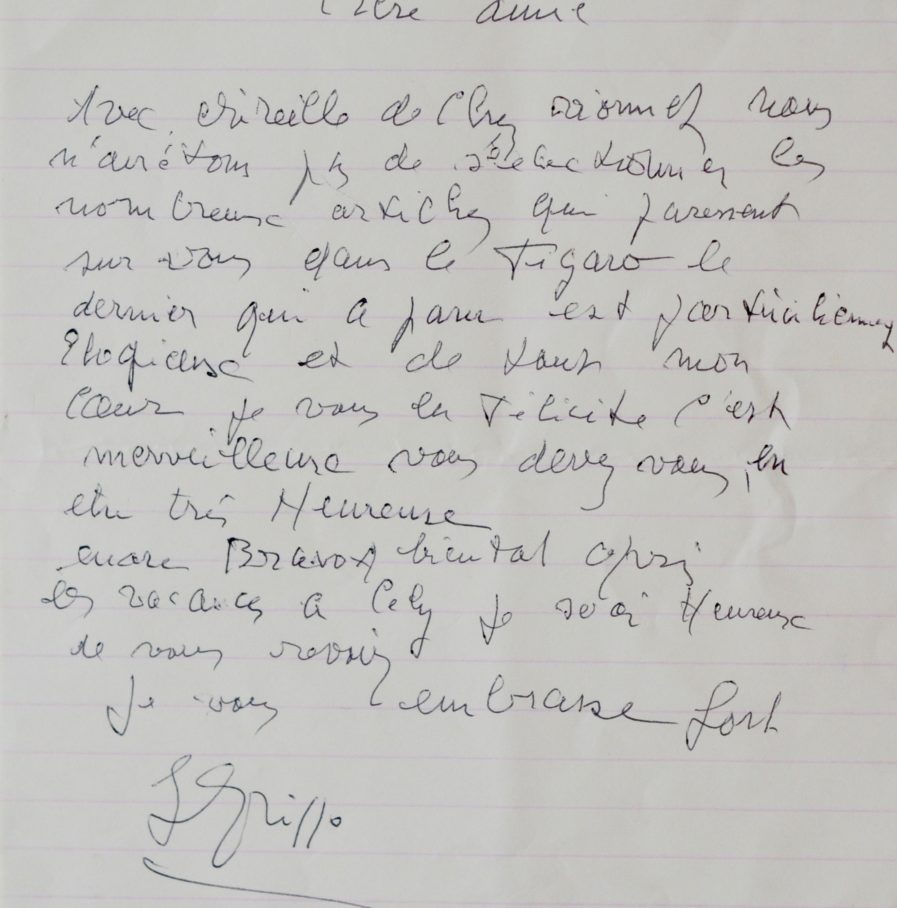 chère amie
Avec Mireille de nous
n'arrêtons pas de sélectionner les
nombreux articles qui paressent
sur vous dans le Figaro le
dernier qui a paru est particulièrement
Elogieuse et de tout mon
Cœur je vous en félicite c'est
merveilleuse vous devez vous en
etre très Heureuse
encore Bravo bientot après
les vacances a Cely je serai Heureuse
de vous revoir
Je vous embrasse fort